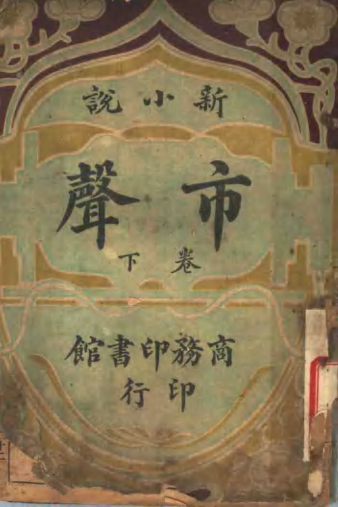 新小說
市聲
卷下
商務印書館
印行